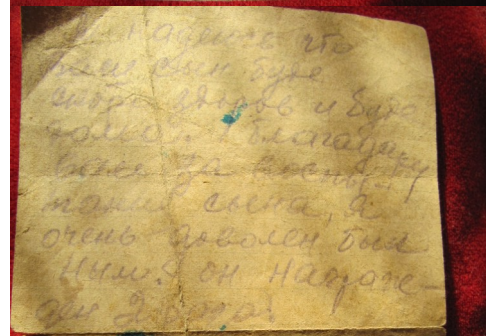 и надеюсь что
ваш сын буде
скоро здоров и буде
Благодару
вам за воспи
тания сына, я
очень доволен был
Ним. он награж-
ден 2 раза.